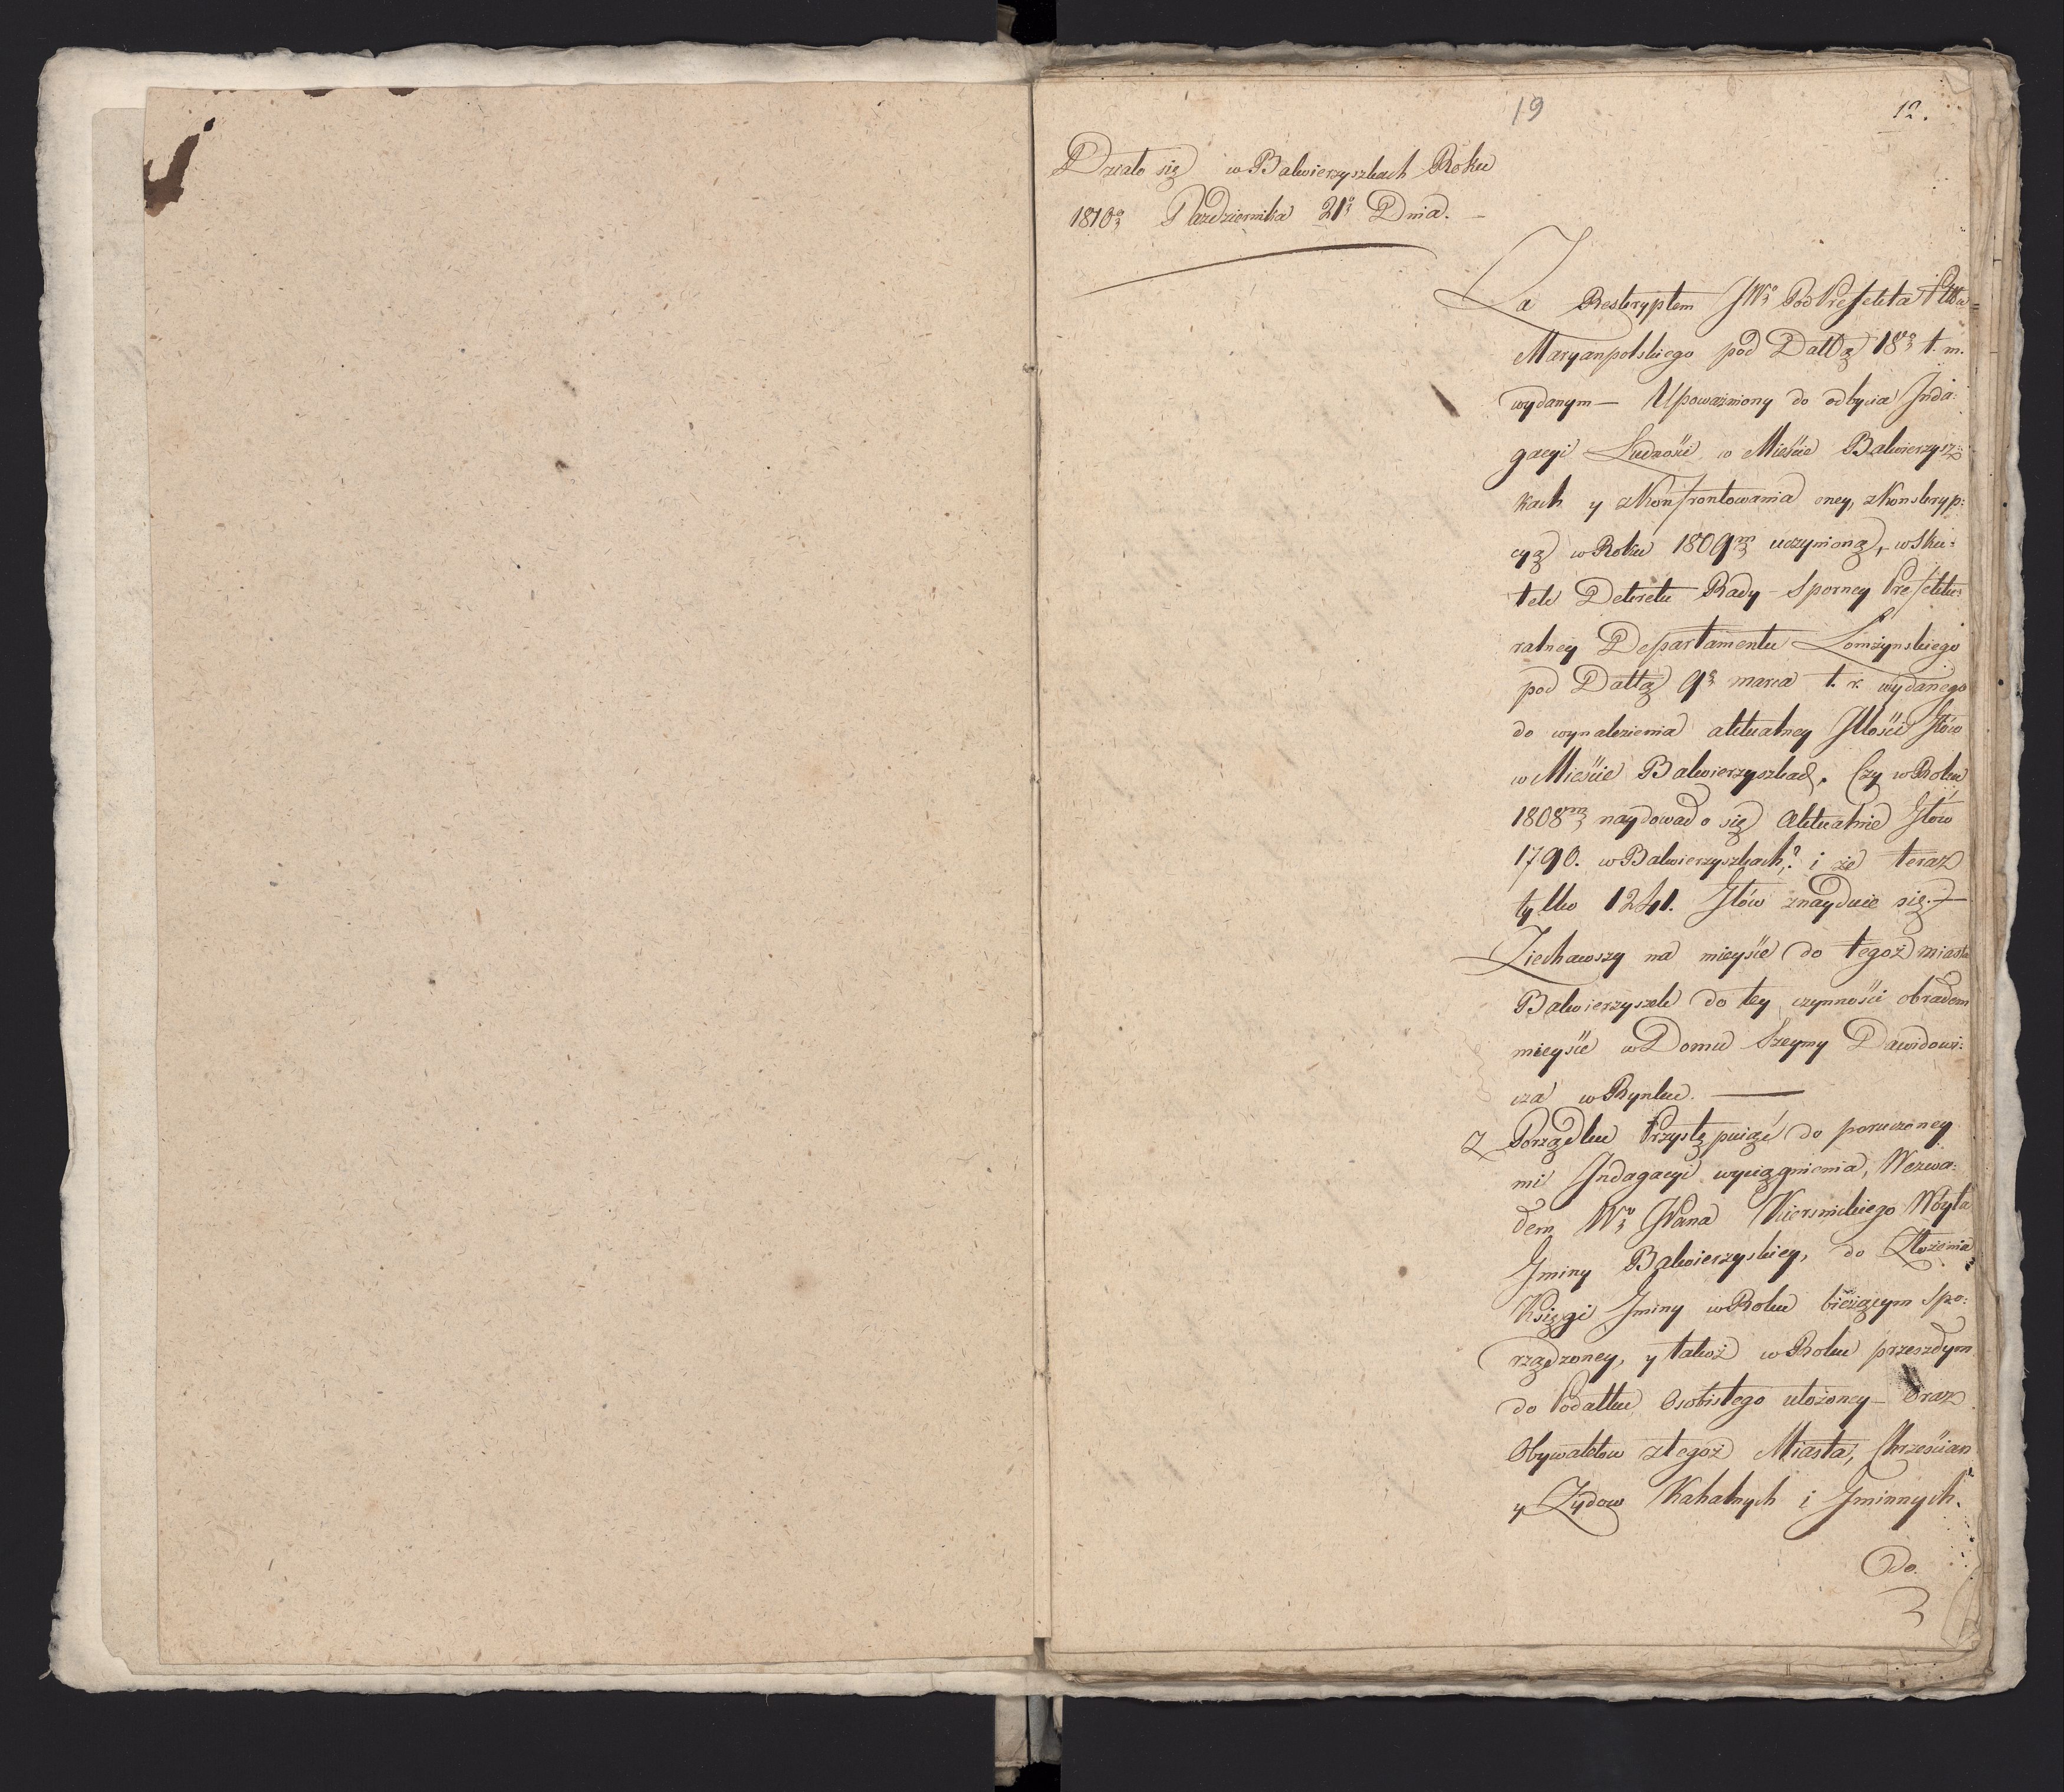 19
12.
Działo się w Balwierzyszkach Roku
1810o Pazdziernika 21o Dnia. —
Za Reskryptem JWo PodPrefekta Pttu
Maryanpolskiego pod Dattą 18o t. m.
wydanym — Upoważniony do odbycia Inda:
gacyi Ludności w Mieście Balwierzysz:
kach y zkonfrontowania oney, zkonskryp:
cyą w Roku 1809m uczynioną, w Sku:
tek Dekretu Rady Sporney Prefektu:
ralney Departamentu Łomżynskiego
pod Dattą 9o marca t. r. wydanego
do wynalezienia aktualney Ilości Głów
w Mieście Balwierzyszkach. Czy w Roku
1808m naydowało się Aktualnie Głów
1790. w Balwierzyszkach? i że teraz
tylko 1241. Głów znayduie się. —
Ziechawszy na mieyście do tegoż miasta
Balwierzyszek do tey czynności obrałem
mieyście w Domu Szeymy Dawidowi:
cza w Rynku. —
Z Porządku Przystępuiąć do poruczoney
mi Indagacyi wyciągnienia, Wezwa:
łem Wo Jana Wiersnickiego Woyta
Gminy Balwierzyskiey, do Złożenia
Księgi Gminy w Roku bieżącym Spo:
rządzoney, y takoż w Roku przeszłym
do Podatku Osobistego ułożoney — Oraz
Obywatelow ztegoż Miasta, Chrześcian
y Zydow Kahalnych i Gminnych.
Do